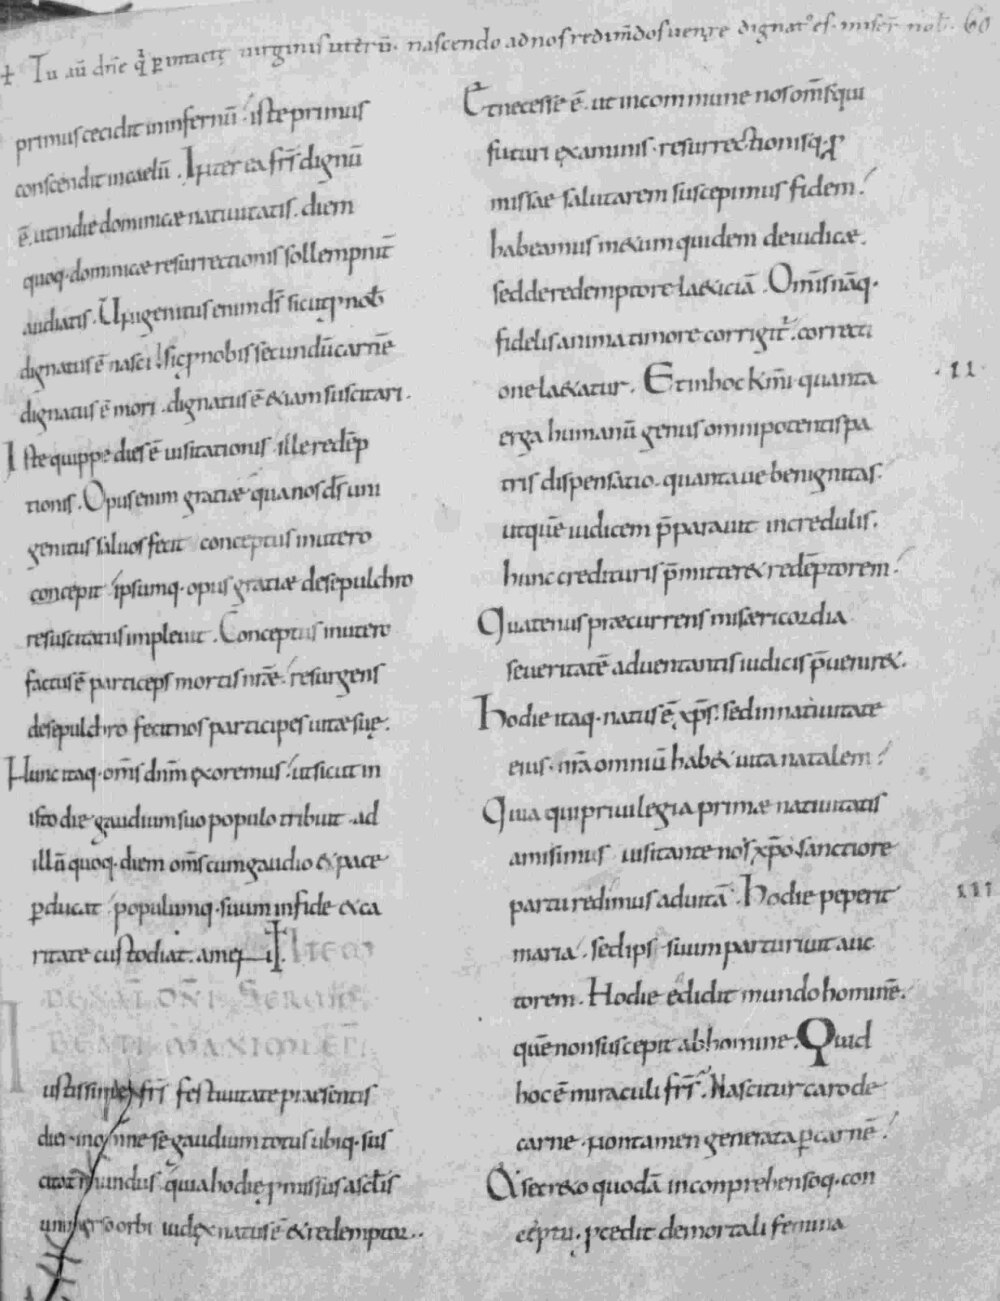 + Tu aū dn̄e q̄ ꝑ intactę uirginis uterū· nascendo ad nos redim̄dos uenire dignat' es· miser̄ nob̄· 60
primus cecidit in infernū· iste primus
conscendit in caelū. Int̄er ea fr̄s dignū
ē. ut in die dominicæ natiuitatis. diem
quoq· dominicæ resurrectionis sollempnit̄
audiatis. Unigenitus enim dī sicut ꝓ nob̄
dignatus ē nasci! sic ꝓ nobis secundū carnē
dignatus ē mori. dignatus ē & iam suscitari.
Iste quippe dies ē uisitationis ille redēp
tionis. Opus enim gratiæ quia nos dī uni
genitus saluos fecit conceptus in utero
concepit ipsumq· opus gratiæ de sepulchro
resuscitatus impleuit. Conceptus in utero
factus ē particeps mortis nr̄æ. resurgens
de sepulchro fecit nos participes uitæ suę.
Hunc itaq· om̄s dn̄m exoremus! ut sicut in
isto die gaudium suo populo tribuit. ad
illā quoq· diem om̄s cum gaudio & pace
ꝑducat populumq· suum in fide & ca
ritate custodiat. amen. II. ITEM
DE NAT̄ DN̄I. SERMO
BEATI MAXIMI EP̄I
Iustissime fr̄s festiuitate praesentis
diei· in omne se gaudium totus ubiq· sus
citat mundus quia hodie ꝓmissus a sc̄lis
uniuerso orbi iudex natus ē & redemptor..
Et necesse ē. ut in commune nos om̄s qui
futuri examinis· resurrectionisq· ꝓ
missae salutarem suscepimus fidem!
habeamus metum quidem de iudice.
sed de redemptore laetitiā. Om̄s nāq·
fidelis anima timore corrigit̄. correcti
one laetatur. Et in hoc km̄i quanta
·II·
erga humanū genus omnipotentis pa
tris dispensatio. quantaue benignitas.
ut quē iudicem p̄parauit incredulis.
hunc credituris p̄mitteret redēptorem!
Quatenus præcurrens misericordia
seueritatē aduentantis iudicis p̄ueniret.
Hodie itaq· natus ē xp̄s. sed in natiuitate
eius· nr̄a omniū habet uita natalem!
Quia qui priuilegia primæ natiuitatis
amisimus uisitante nos xp̄o sanctiore
partu redimus ad uitā. Hodie peperit
III
maria. sed ipsū suum parturiuit auc
torem. Hodie edidit mundo hominē.
quē non suscepit ab homine. Quid
hoc ē miraculi fr̄s. Nascitur caro de
carne· non tamen generata ꝑ carnē!
A secreto quodā inconprehensoq· con
ceptu. ꝓcedit de mortali femina